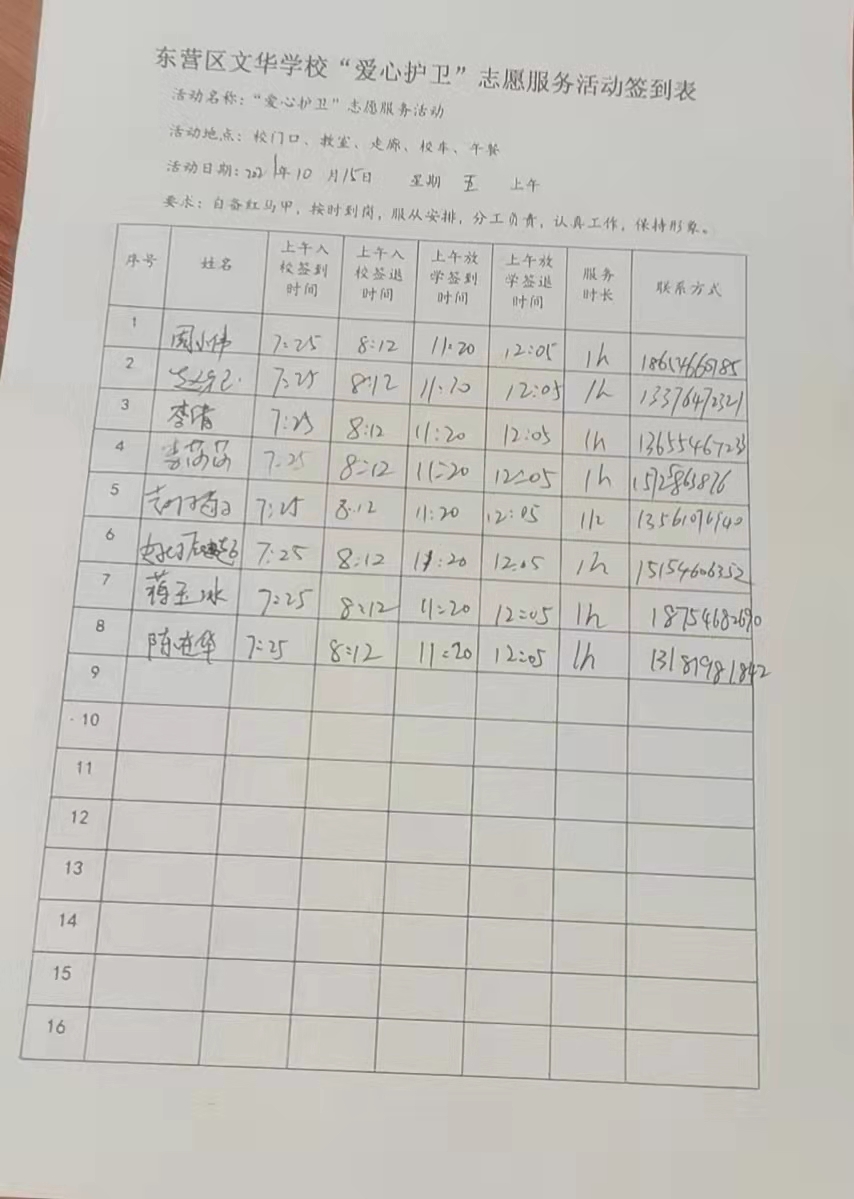 东营区文华学校“爱心护卫”志愿服务活动签到表
活动名称：“爱心护卫”志愿服务活动
活动地点：校门口、教室、走廊、校车、午餐
活动日期：2021年10月15日 星期 五 上午
要求：自备红马甲，按时到岗，服从安排，分工负责，认真工作，保持形象。
序号 姓名 上午入校签到时间 上午入校签退时间 上午放学签到时间 上午放学签退时间 服务时长 联系方式
1 周小伟 7:25 8:12 11:20 12:05 1h
2 7:25 8:12 11:20 12:05 1h 13376472321
3 李倩 7:25 8:12 11:20 12:05 1h
4 7:25 8:12 11:20 12:05 1h
5 7:25 8:12 11:20 12:05
6 7:25 8:12 11:20 12:05 1h 15154606352
7 蒋玉冰 7:25 8:12 11:20 12:05 1h 18754682690
8 陈连华 7:25 8:12 11:20 12:05 1h 13181981842
9
10
11
12
13
14
15
16